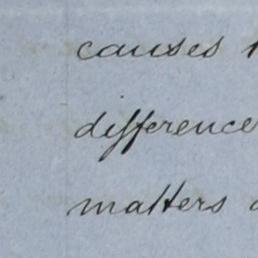 causes
difference
matters